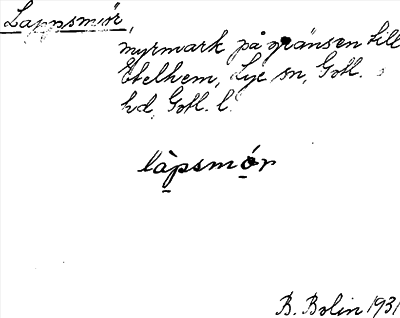 Lappsmór,
myrmark på gränsen till
Etelhem, Lye sn, Gotl. s
hd, Gotl. l.
làpsmór
B. Bolin 1931